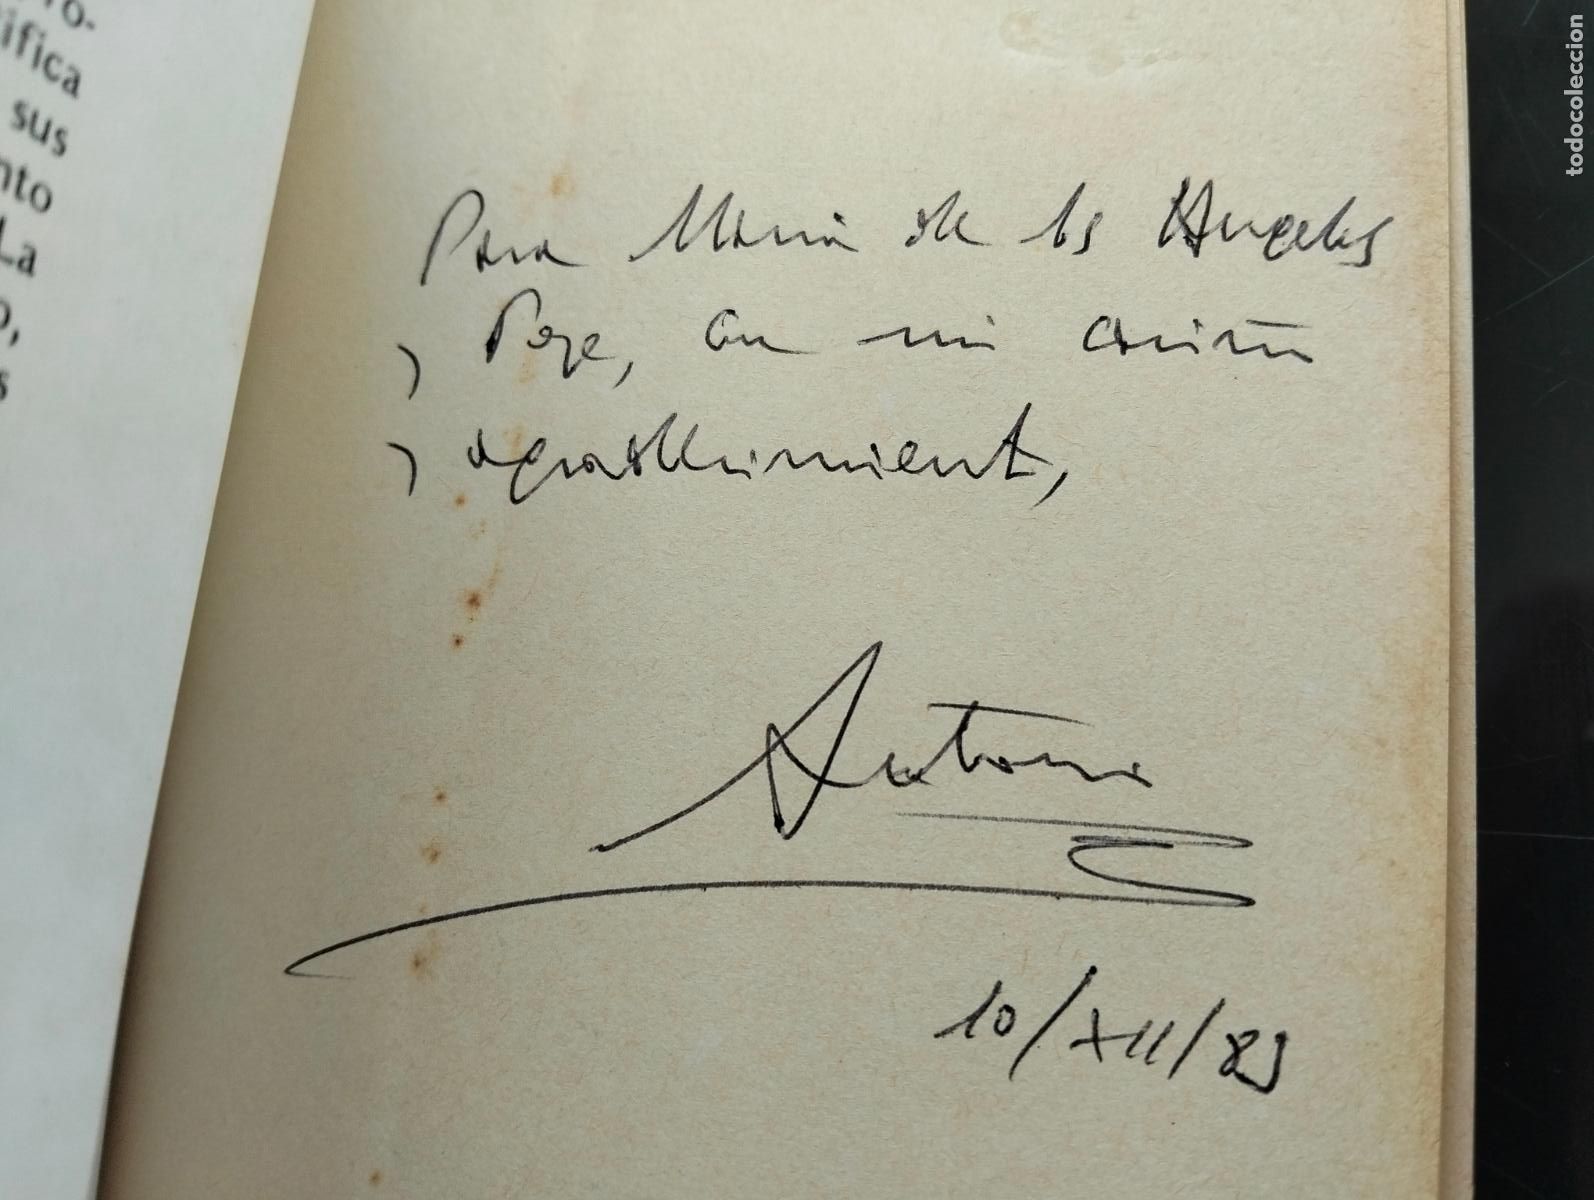 ro-
ifica
sus
nto
La
o,
s
Para María de los Angeles
y Pepe, con mi cariño
y agradecimiento,
Antonio
10/XII/83
todocoleccion